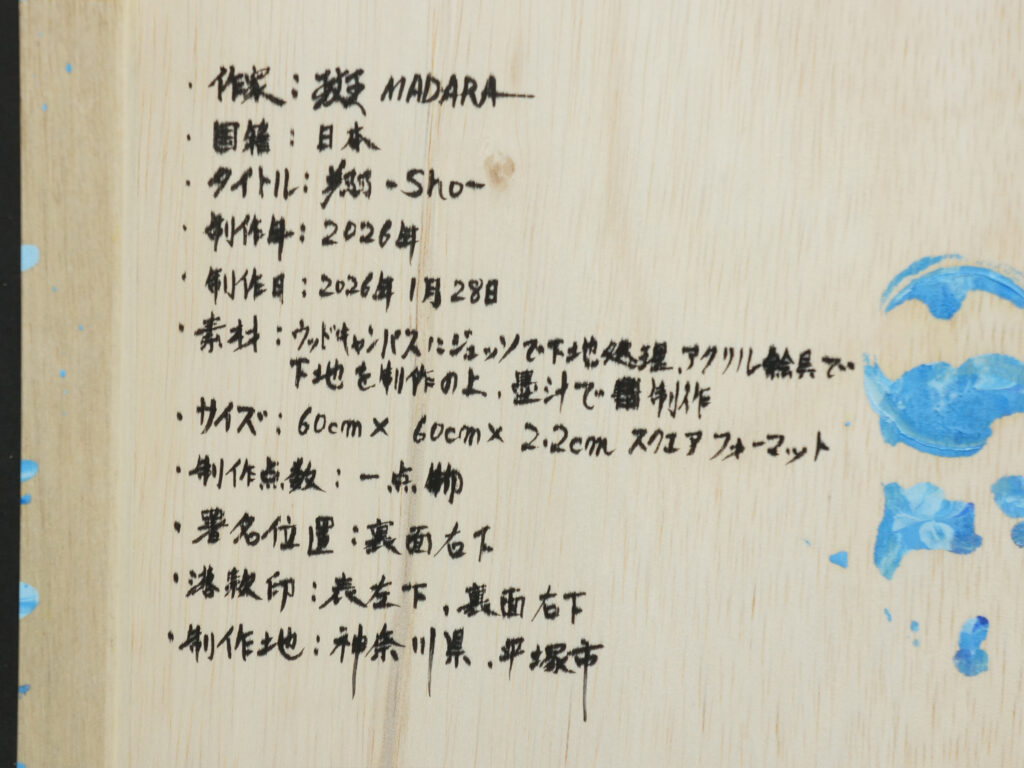 ・作家：斑 MADARA
・国籍：日本
・タイトル：翔 -Sho-
・制作年：2026年
・制作日：2026年1月28日
・素材：ウッドキャンバスにジェッソで下地処理、アクリル絵具で
下地を制作の上、墨汁で 制作
・サイズ：60cm× 60cm× 2.2cm スクエアフォーマット
・制作点数：一点物
・署名位置：裏面右下
・落款印：表左下、裏面右下
・制作地：神奈川県、平塚市